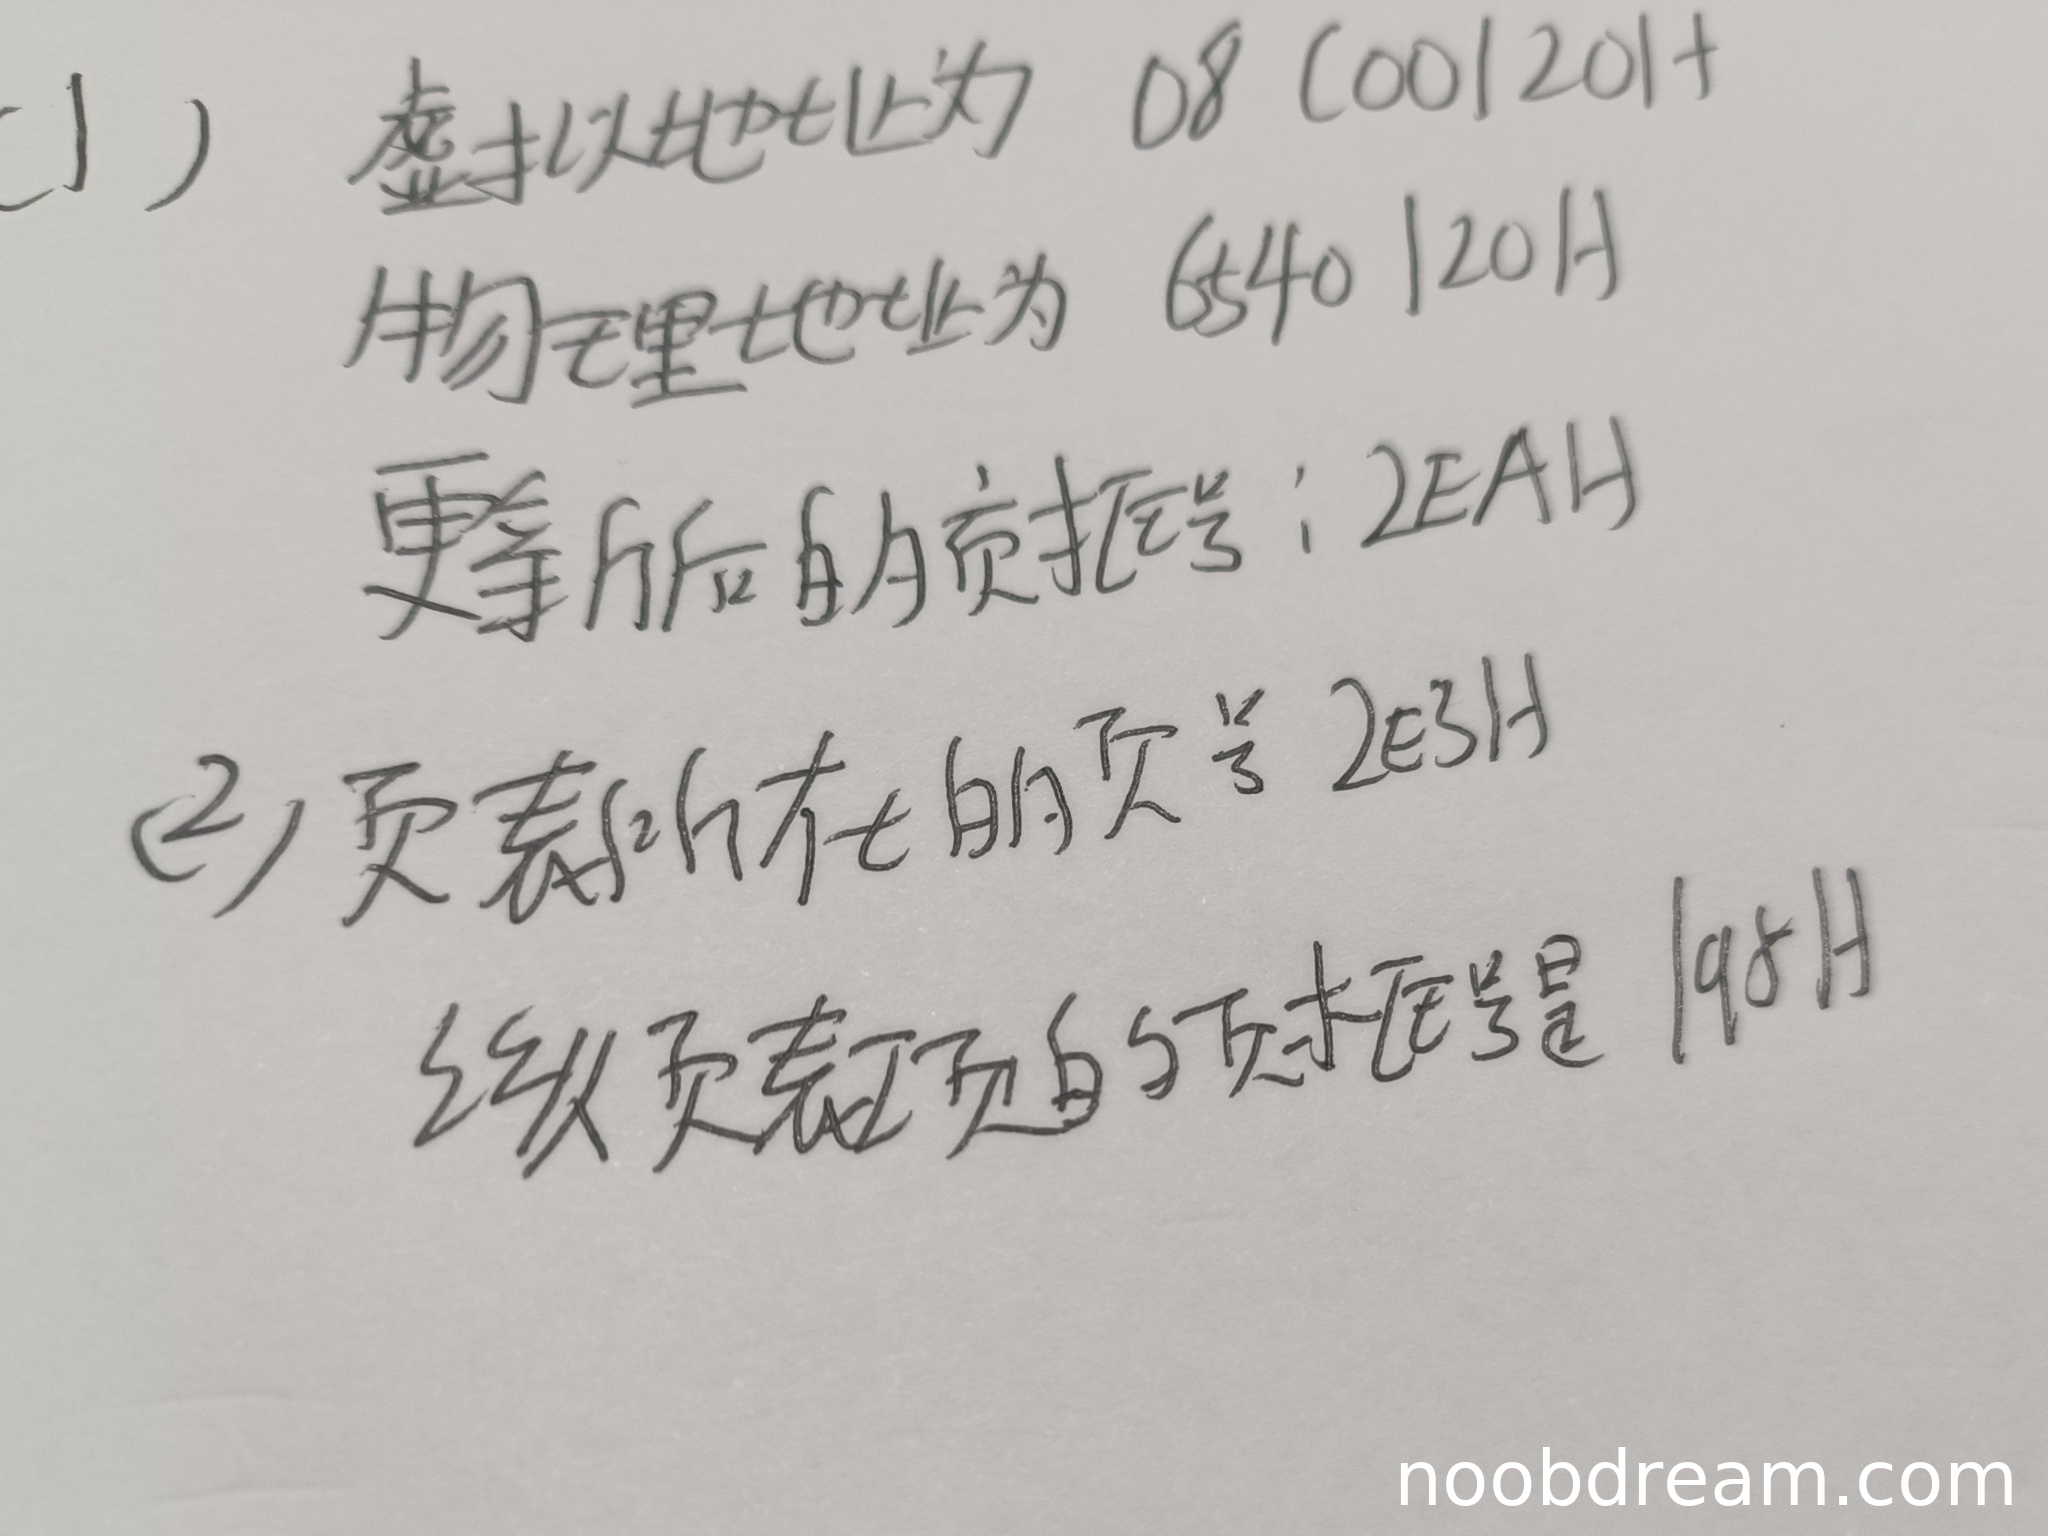 (1) 虚拟地址为 08C00120H
物理地址为 6540120H
更新后的页框号: 2EAH
(2) 页表所在的页号 2E3H
级页表项的页框号是 198H
noobdream.com